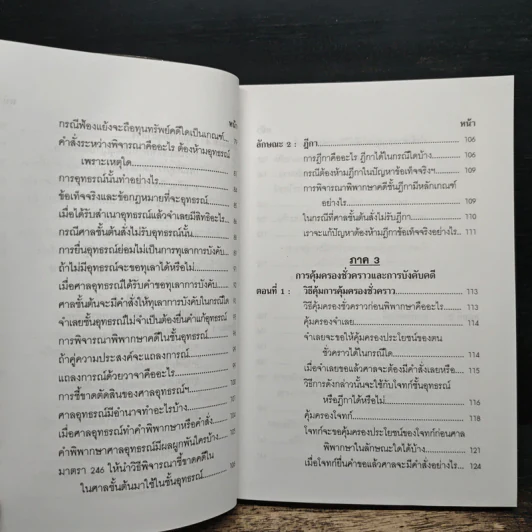 หน้า
กรณีฟ้องแย้งจะถือทุนทรัพย์คดีใดเป็นเกณฑ์
คำสั่งระหว่างพิจารณาคืออะไร ต้องห้ามอุทธรณ์
เพราะเหตุใด
การอุทธรณ์นั้นทำอย่างไร
ข้อเท็จจริงและข้อกฎหมายที่จะอุทธรณ์
เมื่อได้รับสำเนาอุทธรณ์แล้วจำเลยมีสิทธิอะไร
กรณีศาลชั้นต้นสั่งไม่รับอุทธรณ์นั้น
การยื่นอุทธรณ์ย่อมไม่เป็นการทุเลาการบังคับ
ถ้าไม่มีอุทธรณ์จะขอทุเลาได้หรือไม่
เมื่อศาลอุทธรณ์ได้รับคำขอทุเลาการบังคับ
ศาลชั้นต้นจะมีคำสั่งให้ทุเลาการบังคับในกรณีใด
จำเลยชั้นอุทธรณ์ไม่จำเป็นต้องยื่นคำแก้อุทธรณ์
การพิจารณาพิพากษาคดีในชั้นอุทธรณ์
ถ้าคู่ความประสงค์จะแถลงการณ์
แถลงการณ์ด้วยวาจาคืออะไร
การชี้ขาดตัดสินของศาลอุทธรณ์ฯ
ศาลอุทธรณ์มีอำนาจทำอะไรบ้าง
เมื่อศาลอุทธรณ์ทำคำพิพากษาหรือคำสั่ง
คำพิพากษาศาลอุทธรณ์มีผลผูกพันใครบ้าง
มาตรา 246 ให้นำวิธีพิจารณาชี้ขาดคดีใน
ในศาลชั้นต้นมาใช้ในชั้นอุทธรณ์
หน้า
ลักษณะ 2 : ฎีกา 106
การฎีกาคืออะไร ฎีกาได้ในกรณีใดบ้าง 106
กรณีต้องห้ามฎีกาในปัญหาข้อเท็จจริงฯ 109
การพิจารณาพิพากษาคดีชั้นฎีกามีหลักเกณฑ์
อย่างไร 109
ในกรณีที่ศาลชั้นต้นสั่งไม่รับฎีกา 110
เราจะแก้ปัญหาต้องห้ามฎีกาข้อเท็จจริงอย่างไร 111
ภาค 3
การคุ้มครองชั่วคราวและการบังคับคดี
ตอนที่ 1 : วิธีคุ้มการคุ้มครองชั่วคราว 113
วิธีคุ้มครองชั่วคราวก่อนพิพากษาคืออะไร 113
คุ้มครองจำเลย 114
จำเลยจะขอให้คุ้มครองประโยชน์ของตน
ชั่วคราวได้ในกรณีใด 114
เมื่อจำเลยขอแล้วศาลจะต้องมีคำสั่งเลยหรือ 115
วิธีการดังกล่าวนั้นจะใช้กับโจทก์ชั้นอุทธรณ์
หรือฎีกาได้หรือไม่ 116
คุ้มครองโจทก์ 118
โจทก์จะขอคุ้มครองประโยชน์ของโจทก์ก่อนศาล
พิพากษาในลักษณะใดได้บ้าง 121
เมื่อโจทก์ยื่นคำขอแล้วศาลจะมีคำสั่งอย่างไร 124